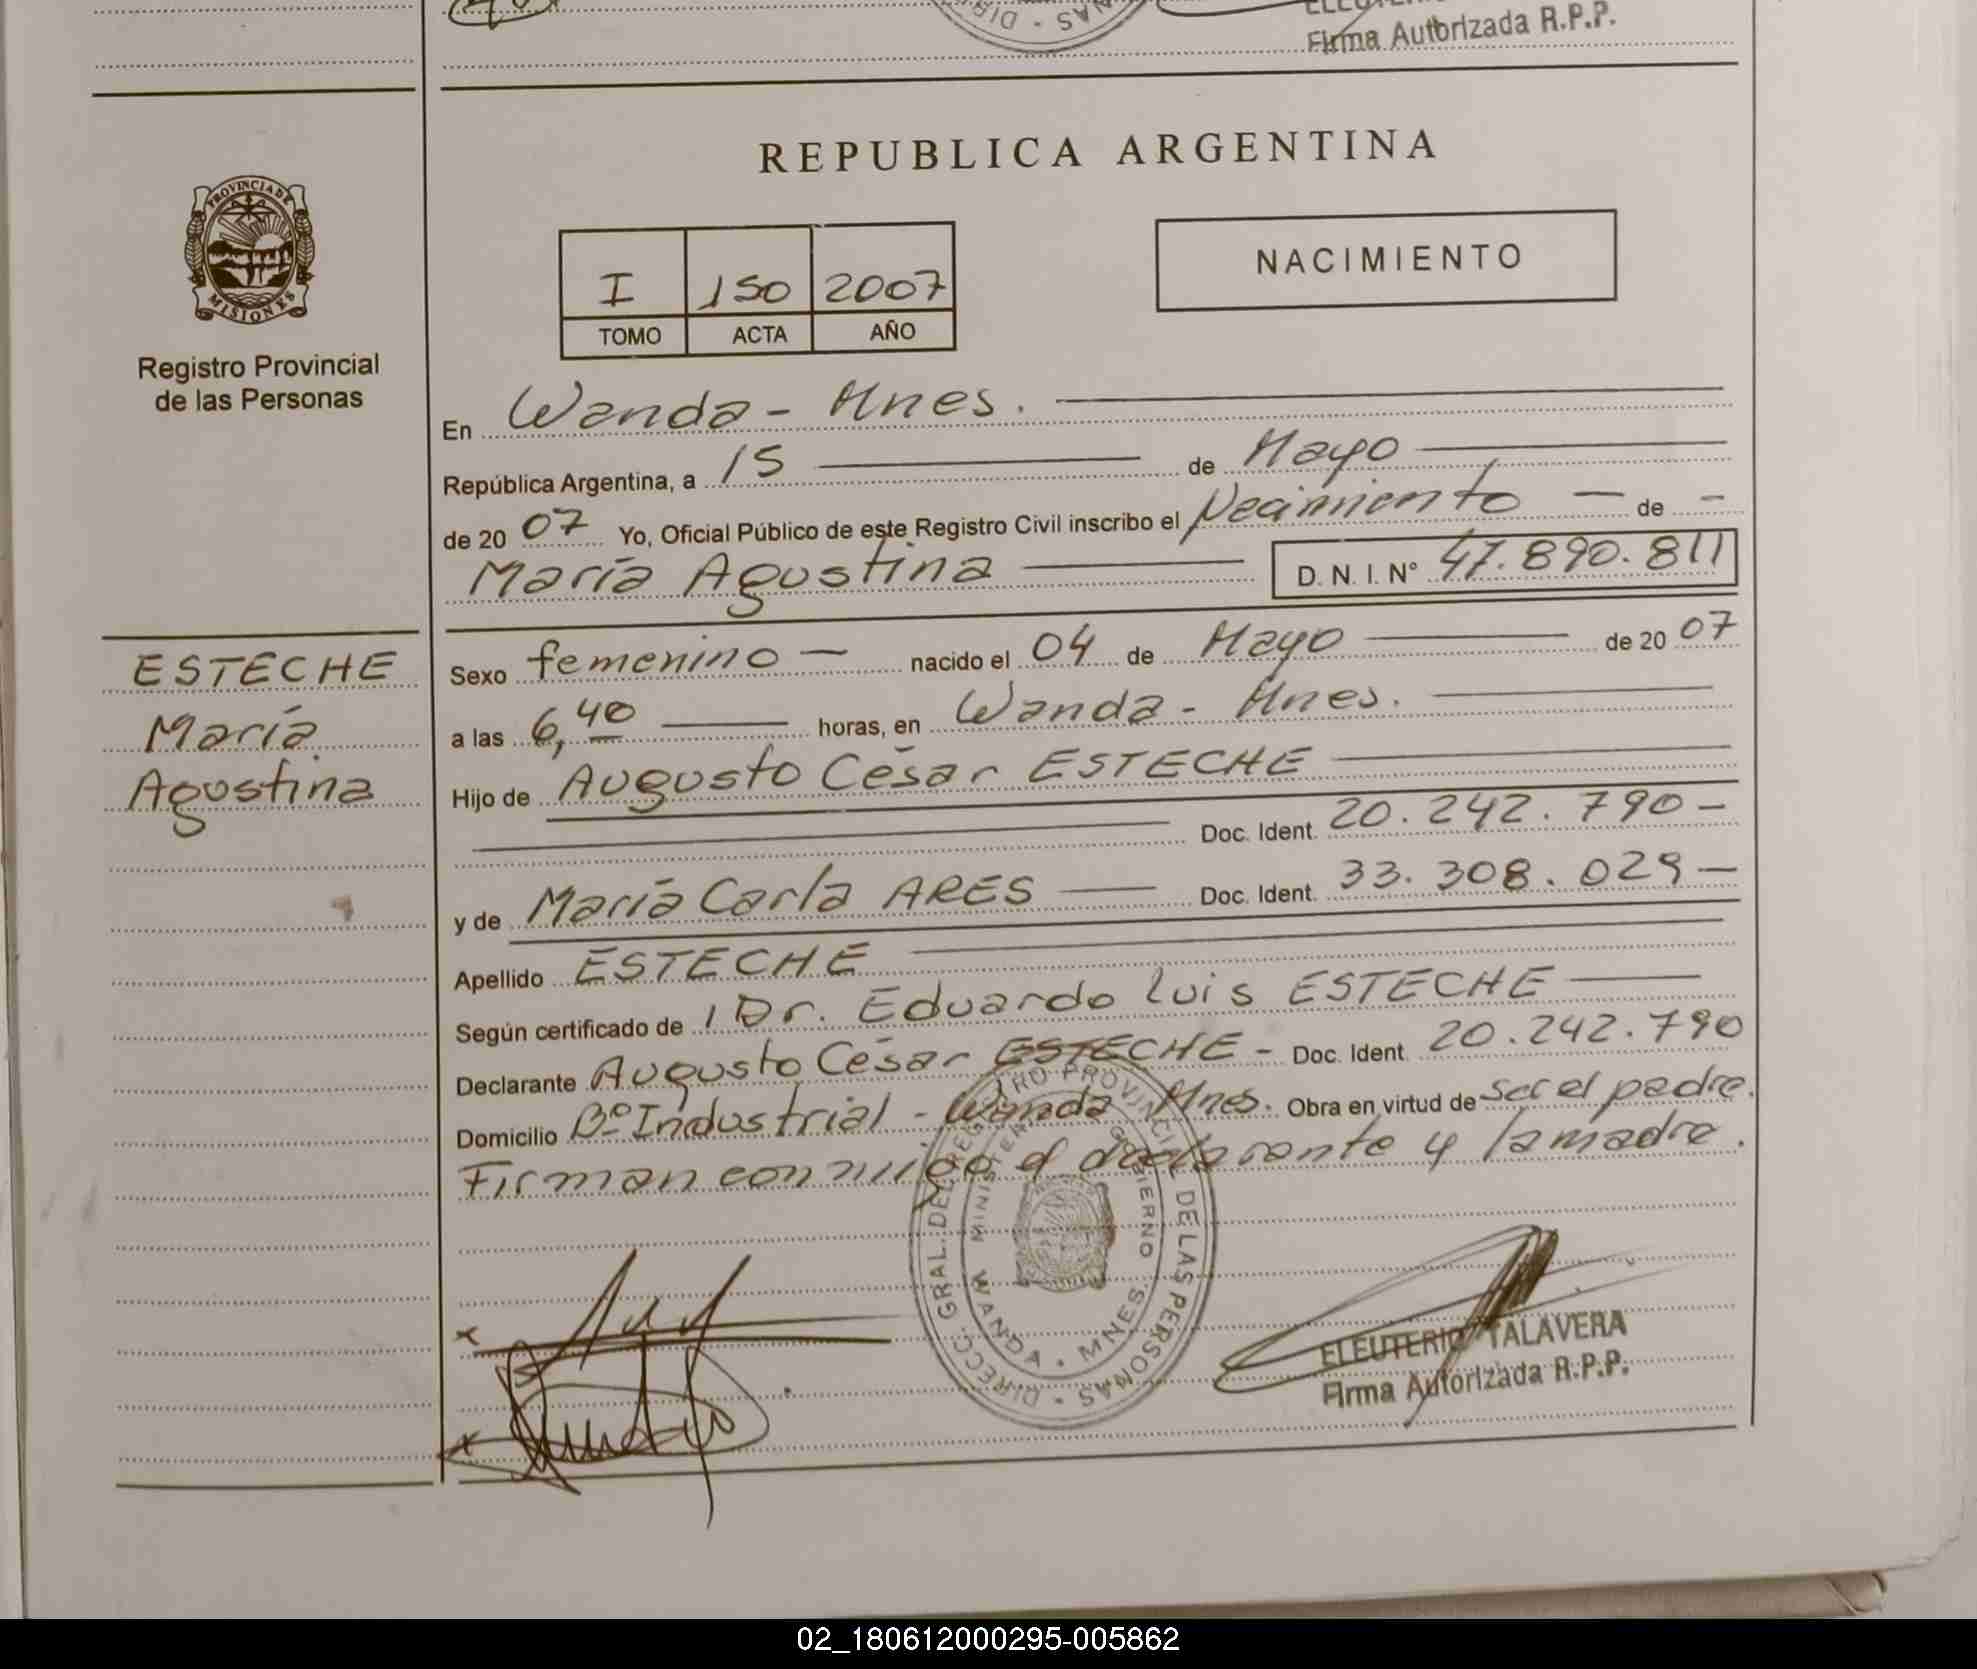 Firma Autorizada R.P.P.
REPUBLICA ARGENTINA
PROVINCIA DE
MISIONES
Registro Provincial
de las Personas
I 150 2007
TOMO ACTA AÑO
NACIMIENTO
En Wanda - Mnes.
República Argentina, a 15 de Mayo
de 20 07 Yo, Oficial Público de este Registro Civil inscribo el Nacimiento - de -
María Agustina D. N. I. Nº 47.890.811
ESTECHE
María
Agostina
Sexo femenino - nacido el 04 de Mayo de 20 07
a las 6,40 horas, en Wanda - Mnes.
Hijo de Augusto César ESTECHE
Doc. Ident. 20.242.790-
y de María Carla ARES Doc. Ident. 33.308.029-
Apellido ESTECHE
Según certificado de 1 Dr. Eduardo Luis ESTECHE
Declarante Augusto César ESTECHE - Doc. Ident. 20.242.790
Domicilio Bº Industrial - Wanda Mnes. Obra en virtud de ser el padre.
Firman conmigo el declarante y la madre.
DIRECC. GRAL. DEL REGISTRO PROVINCIAL DE LAS PERSONAS
MINISTERIO GOBIERNO
WANDA - MNES.
ELEUTERIO TALAVERA
Firma Autorizada R.P.P.
02_180612000295-005862